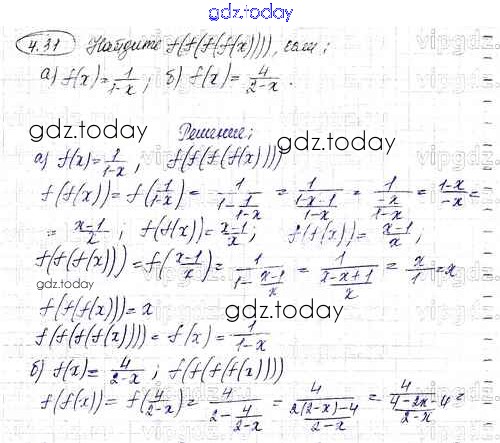 gdz.today
4.31 Найдите f(f(f(f(x)))), если:
а) f(x)=1/(1-x); б) f(x)=4/(2-x).
gdz.today
gdz.today
Решение:
а) f(x)=1/(1-x), f(f(f(f(x))))
f(f(x))=f(1/(1-x))=1/(1-1/(1-x))=1/((1-x-1)/(1-x))=1/(-x/(1-x))=(1-x)/(-x)=
=(x-1)/x; f(f(x))=(x-1)/x; f(f(x))=(x-1)/x;
f(f(f(x)))=f((x-1)/x)=1/(1-(x-1)/x)=1/((x-x+1)/x)=x/1=x
gdz.today
gdz.today
f(f(f(x)))=x
f(f(f(f(x))))=f(x)=1/(1-x)
б) f(x)=4/(2-x); f(f(f(f(x))))
gdz.today
f(f(x))=f(4/(2-x))=4/(2-4/(2-x))=4/((2(2-x)-4)/(2-x))=4/((4-2x-4)/(2-x))=